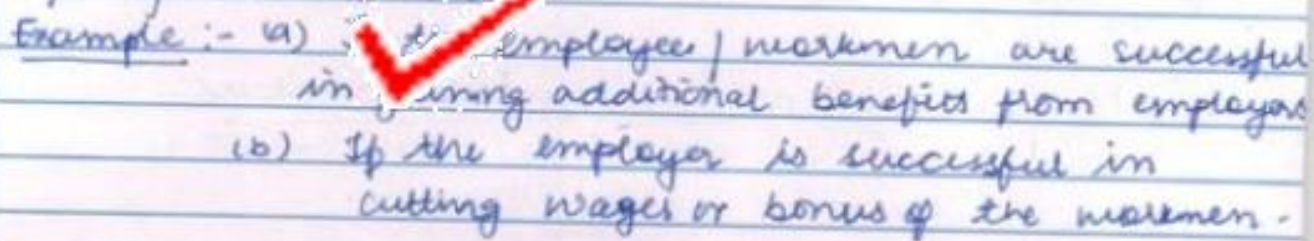 Example :- (a) employee / workmen are successful
in additional benefits from employers
(b) If the employer is successful in
cutting wages or bonus of the workmen.